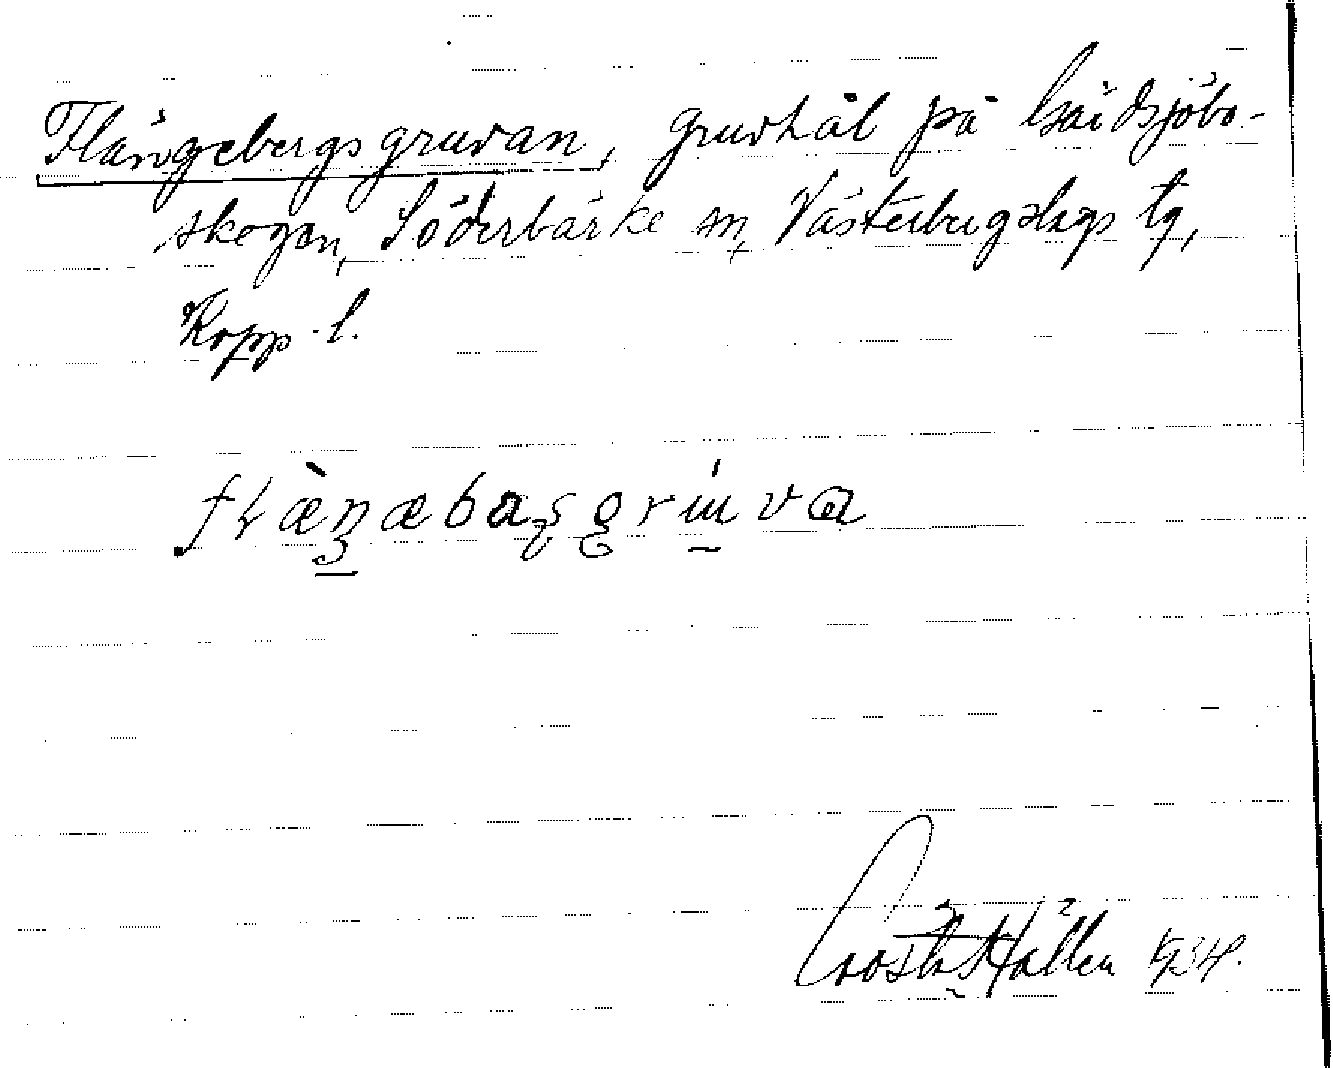 Flängebergsgruvan, gruvhål på Gäddsjöbo-
skogen, Söderbärke sn, Västerbergslags tg,
Kopp. l.
Gösta Hallén 1934.